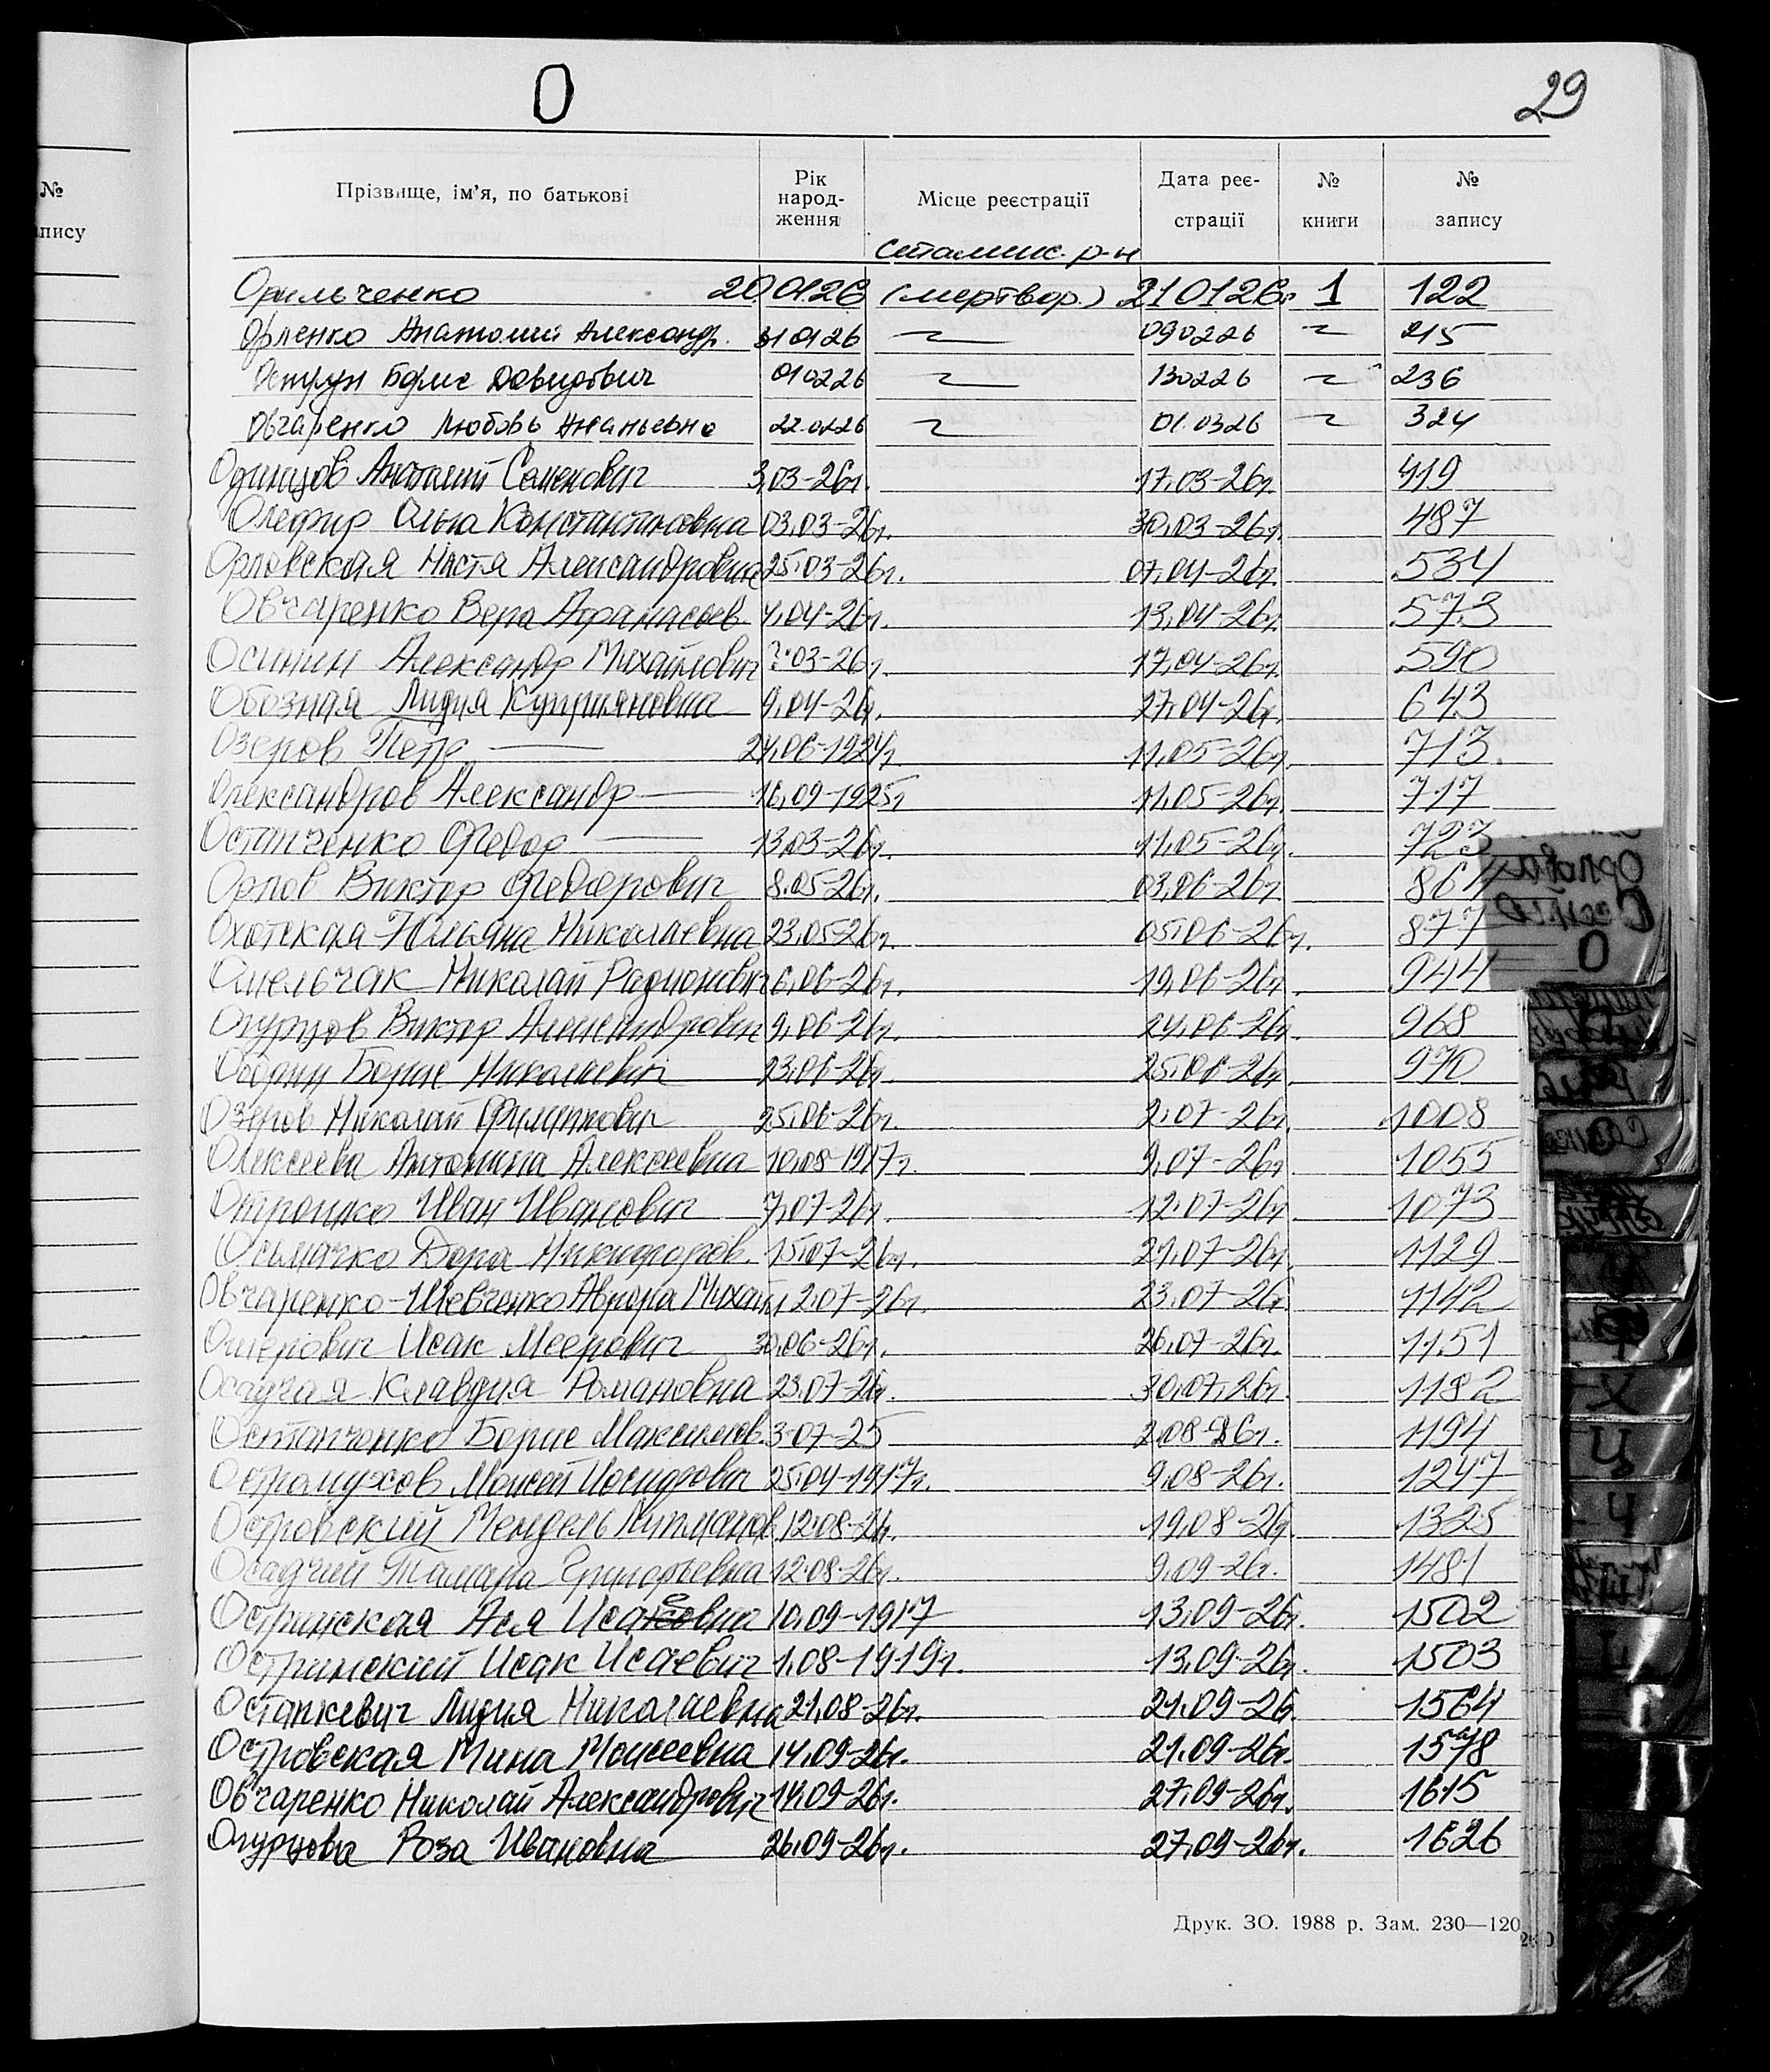 О
29
№
пису
Прізвище, ім'я, по батькові
Рік народ-ження
Місце реєстрації
Дата реє-страції
№ книги
№ запису
Сталинс. р-н
Орильченко 20 01 26 (мертвор.) 21 01 26г 1 122
Орленко Анатолий Александр. 31 01 26 09 02 26 215
Борис Давидович 01 02 26 13 02 26 236
Овчаренко Любовь Ананьевна 22.02 26 01.03 26 324
Одинцов Анатолий Семенович 3,03-26г. 17,03-26г. 419
Олефир Ольга Константиновна 03,03-26г. 30,03-26г. 487
Орловская Настя Александровна 25,03-26г. 07,04-26г. 534
Овчаренко Вера Афанасьев 4,04-26г. 13,04-26г. 573
Осинин Александр Михайлович ?.03-26г. 17,04-26г. 590
Обозная Лидия Куприяновна 9,04-26г. 27,04-26г. 643
Озеров Петр 24,06-1924г. 11,05-26г. 713
Олександров Александр 16,09-1925г 11,05-26г. 717
Остапченко Федор 13,03-26г. 11,05-26г. 723
Орлов Виктор Федорович 8.05-26г. 03,06-26г. 861
Охотская Юльяна Николаевна 23,05-26г. 05,06-26г. 877
Омельчак Николай Радионович 6,06-26г. 19,06-26г. 944
Огурцов Виктор Александрович 9,06-26г. 24,06-26г. 968
Борис Николаевич 23,06-26г. 25,06-26г. 970
Озеров Николай Филиппович 25,06-26г. 2,07-26г. 1008
Олексеева Антонина Алексеевна 10,08-1917г. 9,07-26г 1055
Иван Иванович 7,07-26г. 12,07-26г. 1073
Осьмачко Дора Никифоров. 15,07-26г. 21,07-26г. 1129
Овчаренко-Шевченко Аврора Михайл 2.07-26г. 23,07-26г. 1142
Ошерович Исак Меерович 30,06-26г. 26,07-26г. 1151
Осадчая Клавдия Романовна 23,07-26г. 30,07,26г. 1182
Остапченко Борис Максимов. 3-07-25 2,08-26г. 1194
Остромухов Моисей Иосифович 25,04-1917г. 9,08-26г. 1247
Островский Мендель Липманов. 12.08-26г. 19,08-26г. 1325
Осадчий Тамара Григорьевна 12.08-26г. 9.09-26г. 1481
Остринская Ася Исаковна 10,09-1917 13,09-26г. 1502
Остринский Исак Исаевич 1,08-1919г. 13,09-26г. 1503
Остапкевич Лидия Николаевна 21,08-26г. 21,09-26. 1564
Островская Мина Моисеевна 14,09-26г. 21.09-26г. 1578
Овчаренко Николай Александрович 14,09-26г. 27,09-26г. 1615
Огурцова Роза Ивановна 26,09-26г. 27,09-26г. 1626
Друк. ЗО. 1988 р. Зам. 230—120
О
Х
Ц
Ч